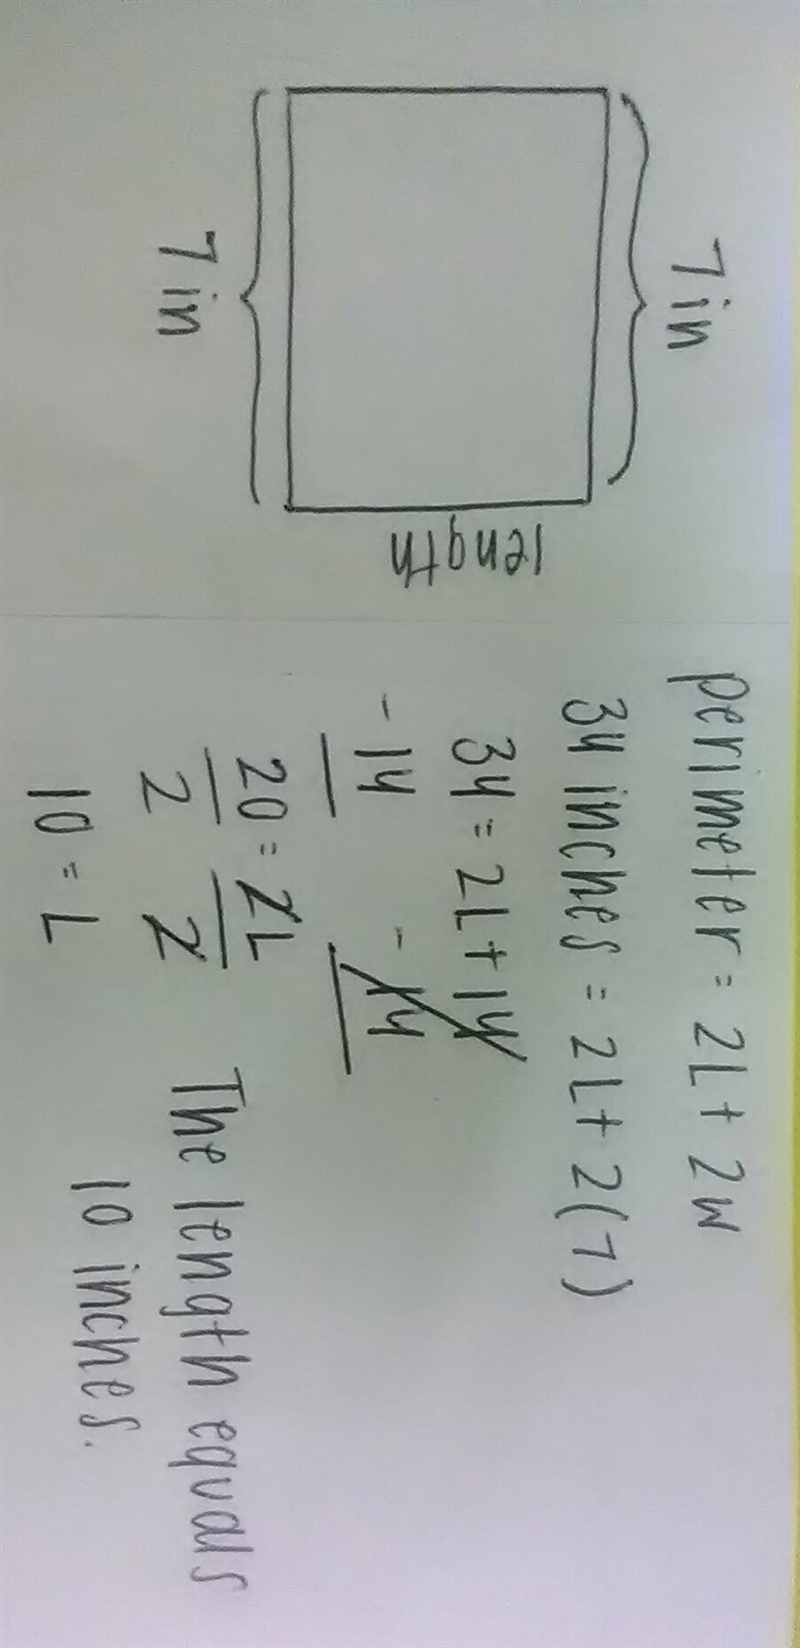 7 in
length
7 in
perimeter = 2L + 2W
34 inches = 2L + 2(7)
34 = 2L + 14
-14 -14
20 = 2L
2 2
10 = L
The length equals
10 inches.